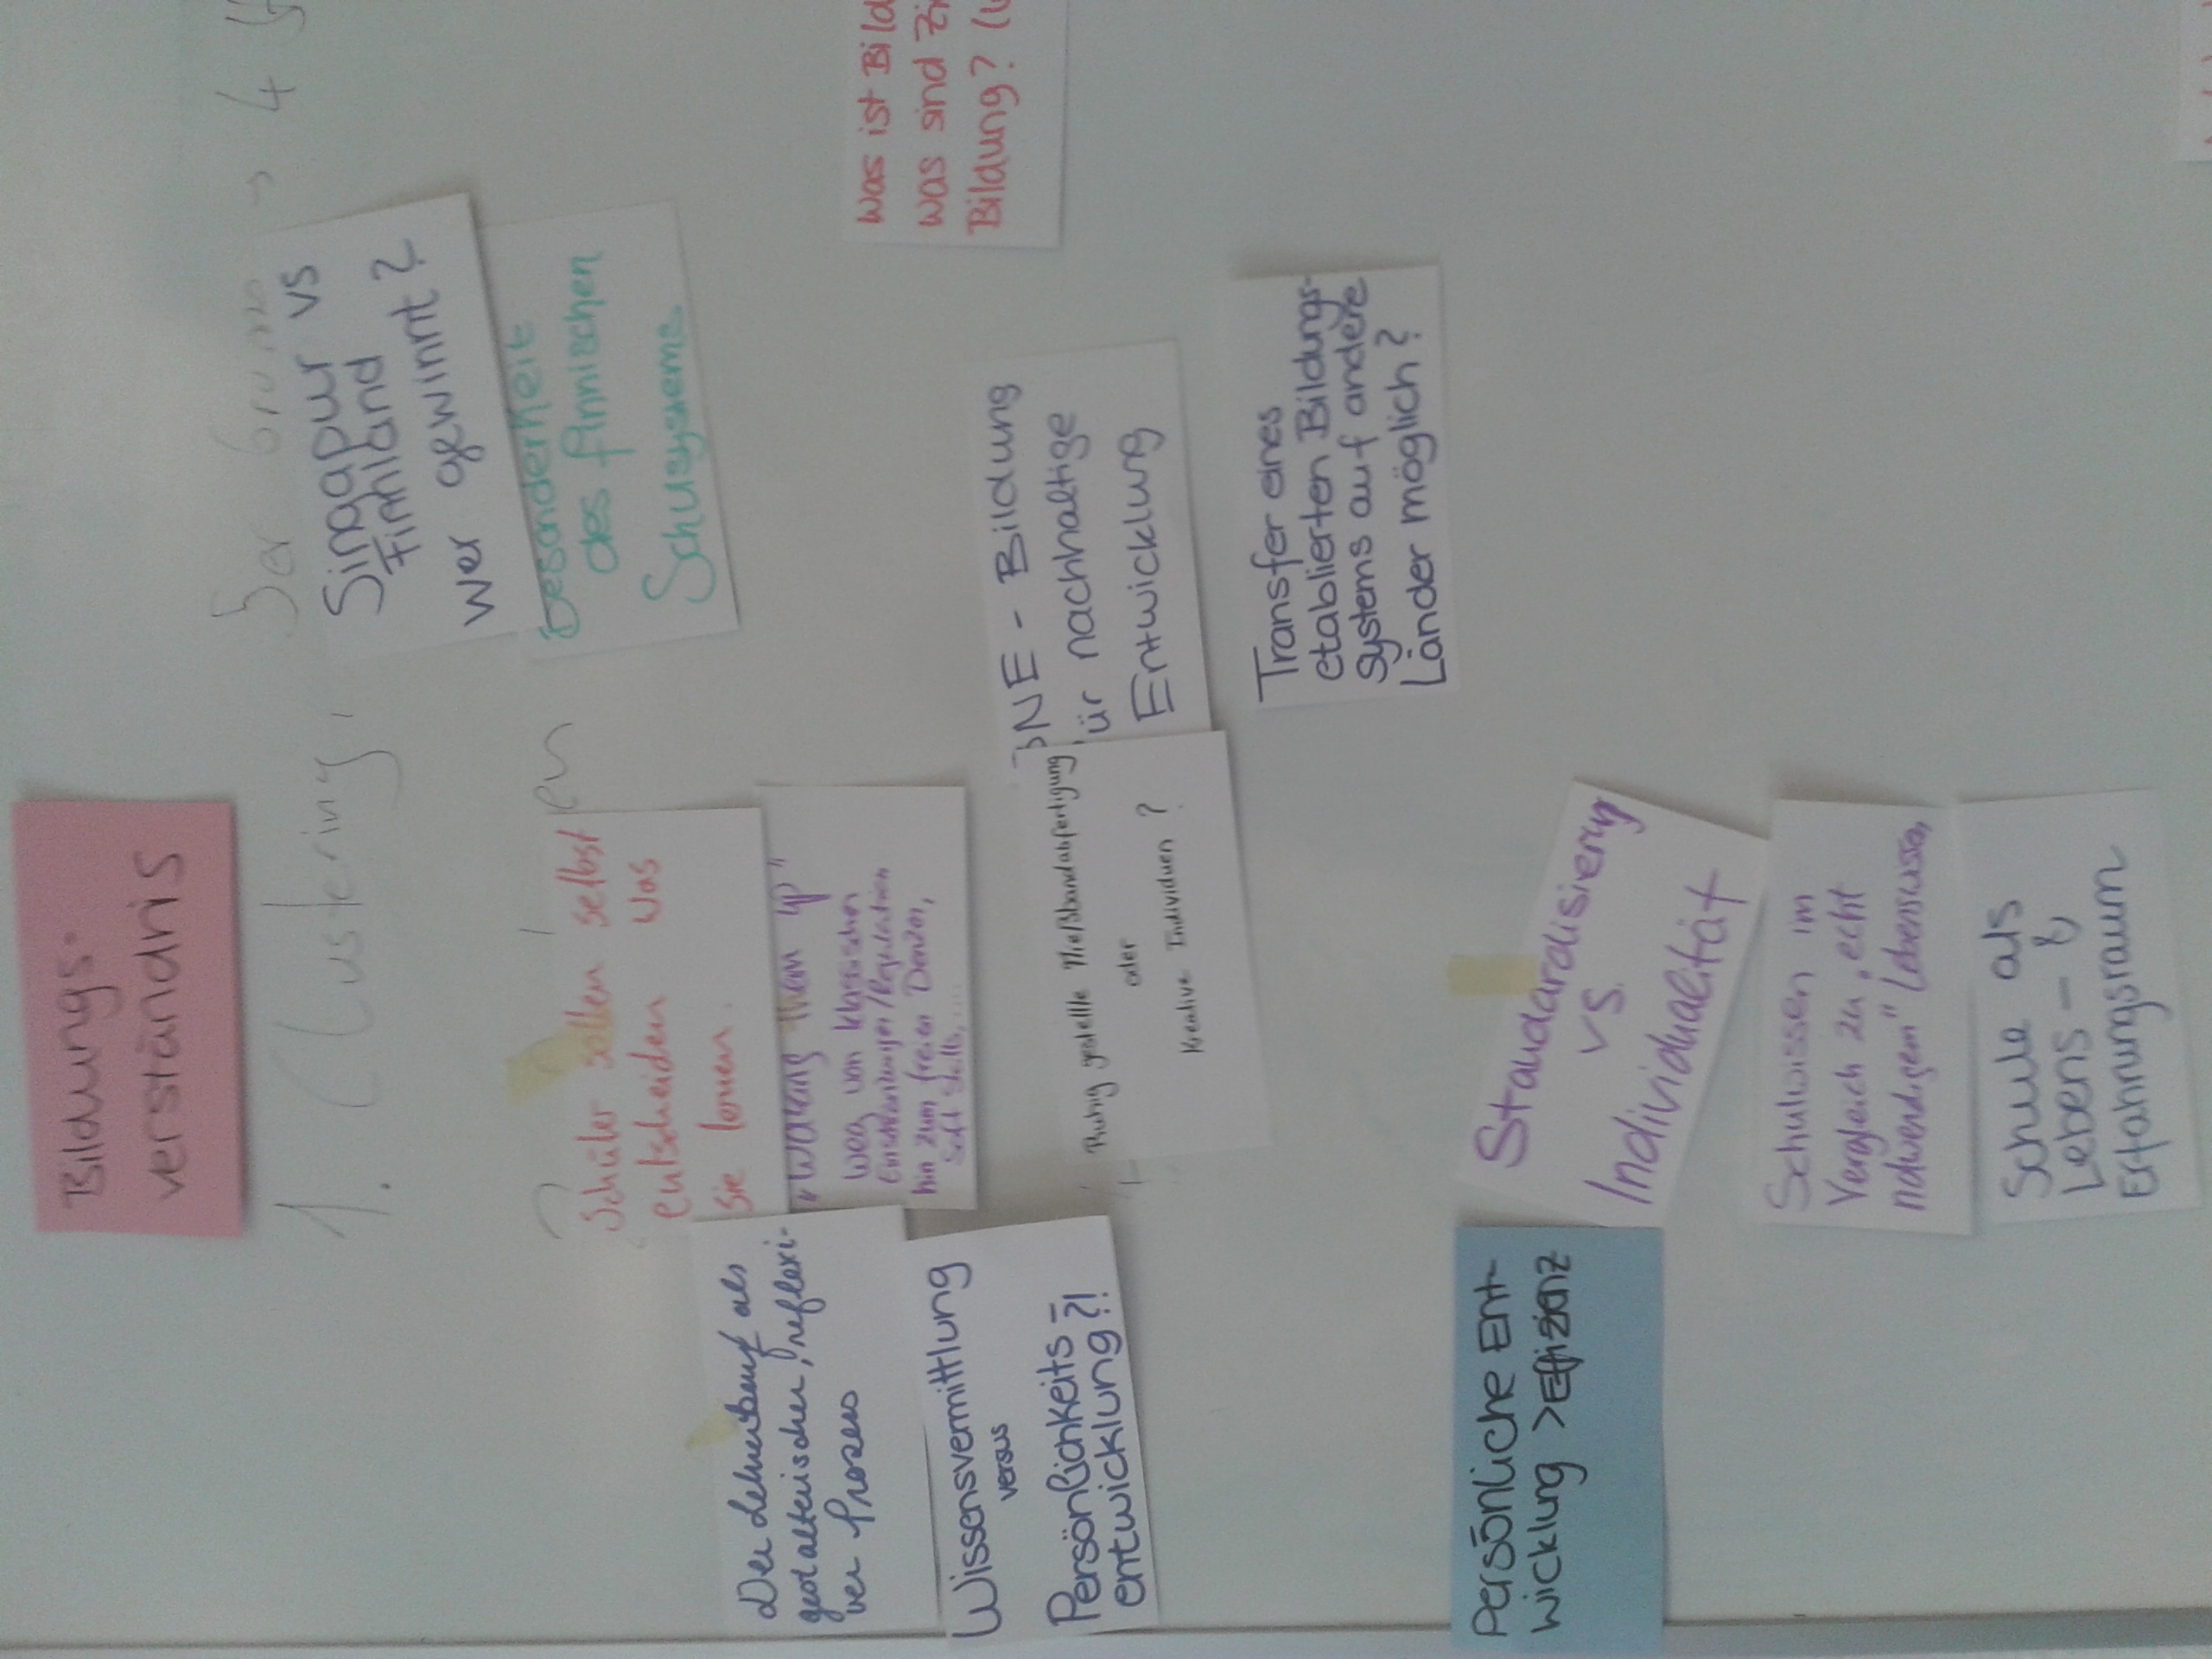 Bildungs-
verständnis
1. Clustering,
5er Grupp → 4
Singapur vs
Finnland
wer gewinnt?
Besonderheit
des finnischen
Schusystems
Schüler sollen selbst
entscheiden was
sie lernen.
en
Der Lehrerberuf als
gestalterischer, reflexi-
ver Prozess
them up"
weg von klassischen
Einschränkungen/Regulation
hin zum freien Denken,
Soft Skills, ....
Wissensvermittlung
versus
Persönlichkeits-
entwicklung?!
Ruhig gestellte Fließbandabfertigung
oder
Kreative Individuen ?
NE - Bildung
ür nachhaltige
Entwicklung
Was ist Bild
was sind Zi
Bildung? (
Transfer eines
etablierten Bildungs-
systems auf andere
Länder möglich?
Persönliche Ent-
wicklung > Effizienz
Standardisierung
vs.
Individualität
Schulwissen im
Vergleich zu „echt
notwendigem" Lebenswissen
Schule als
Lebens- &
Erfahrungsraum